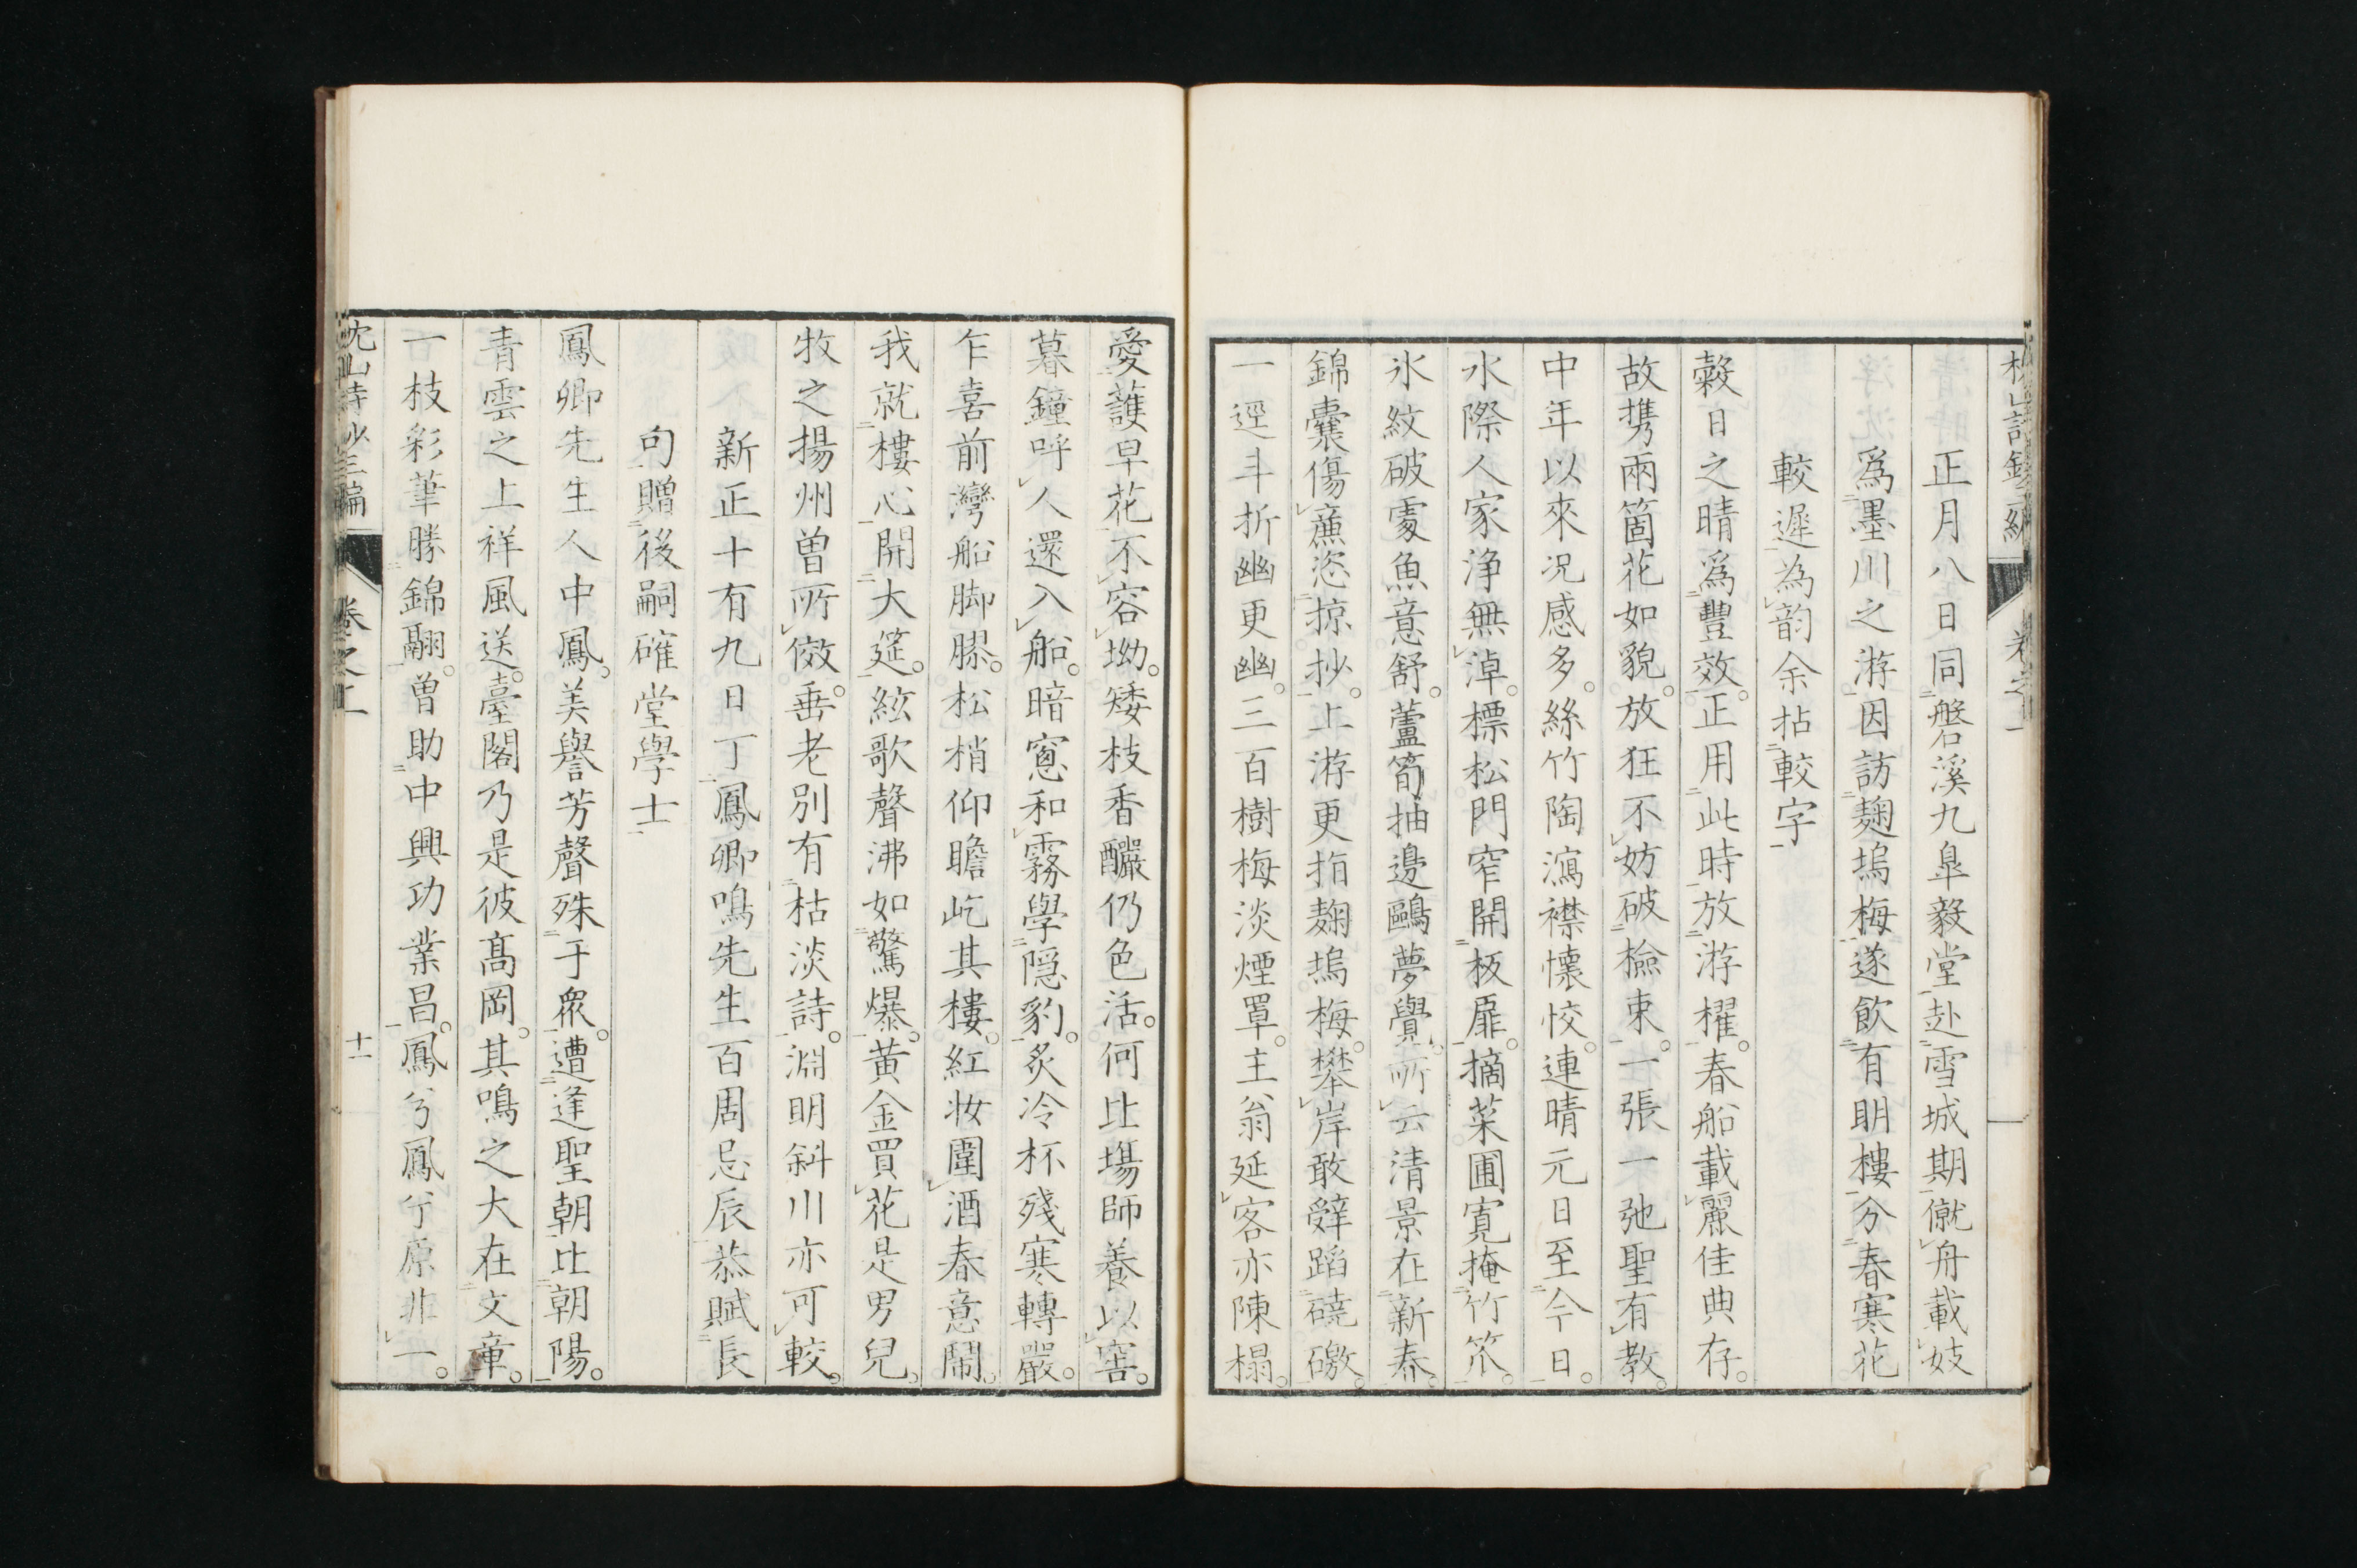 正月八日同磐溪九皐毅堂赴雪城期僦舟載妓
爲墨川之游因訪麹塢梅遂飲有明樓分春寒花
較遲為韵余拈較字
穀日之晴爲豐效。正用此時放游櫂。春船載麗佳典存。
故携兩箇花如貌。放狂不妨破檢束。一張一弛聖有教。
中年以來況感多。絲竹陶瀉襟懷恔。連晴元日至今日。
水際人家淨無淖。標松門窄開板扉。摘菜圃寛掩竹笊。
氷紋破處魚意舒。蘆筍抽邊鷗夢覺。所云清景在新春。
錦囊傷廉恣掠抄。上游更指麹塢梅。攀岸敢辭蹈磽磝。
一逕斗折幽更幽。三百樹梅淡煙罩。主翁延客亦陳榻。
愛護早花不容坳。矮枝香釅仍色活。何比塲師養以窖。
暮鐘呼人還入船。暗窻和霧學隠豹。炙冷杯殘寒轉嚴。
乍喜前灣船脚膠。松梢仰瞻屹其樓。紅妝圍酒春意鬧。
我就樓心開大筵。絃歌聲沸如驚爆。黄金買花是男兒。
牧之揚州曽所傚。垂老別有枯淡詩。淵明斜川亦可較。
新正十有九日丁鳳卿鳴先生百周忌辰恭賦長
句贈後嗣確堂學士
鳳卿先生人中鳳。美譽芳聲殊于衆。遭逢聖朝比朝陽。
青雲之上祥風送。臺閣乃是彼髙岡。其鳴之大在文章。
一枝彩筆勝錦翮。曽助中興功業昌。鳳兮鳳兮原非一。
枕山詩鈔三編
卷之上
十一